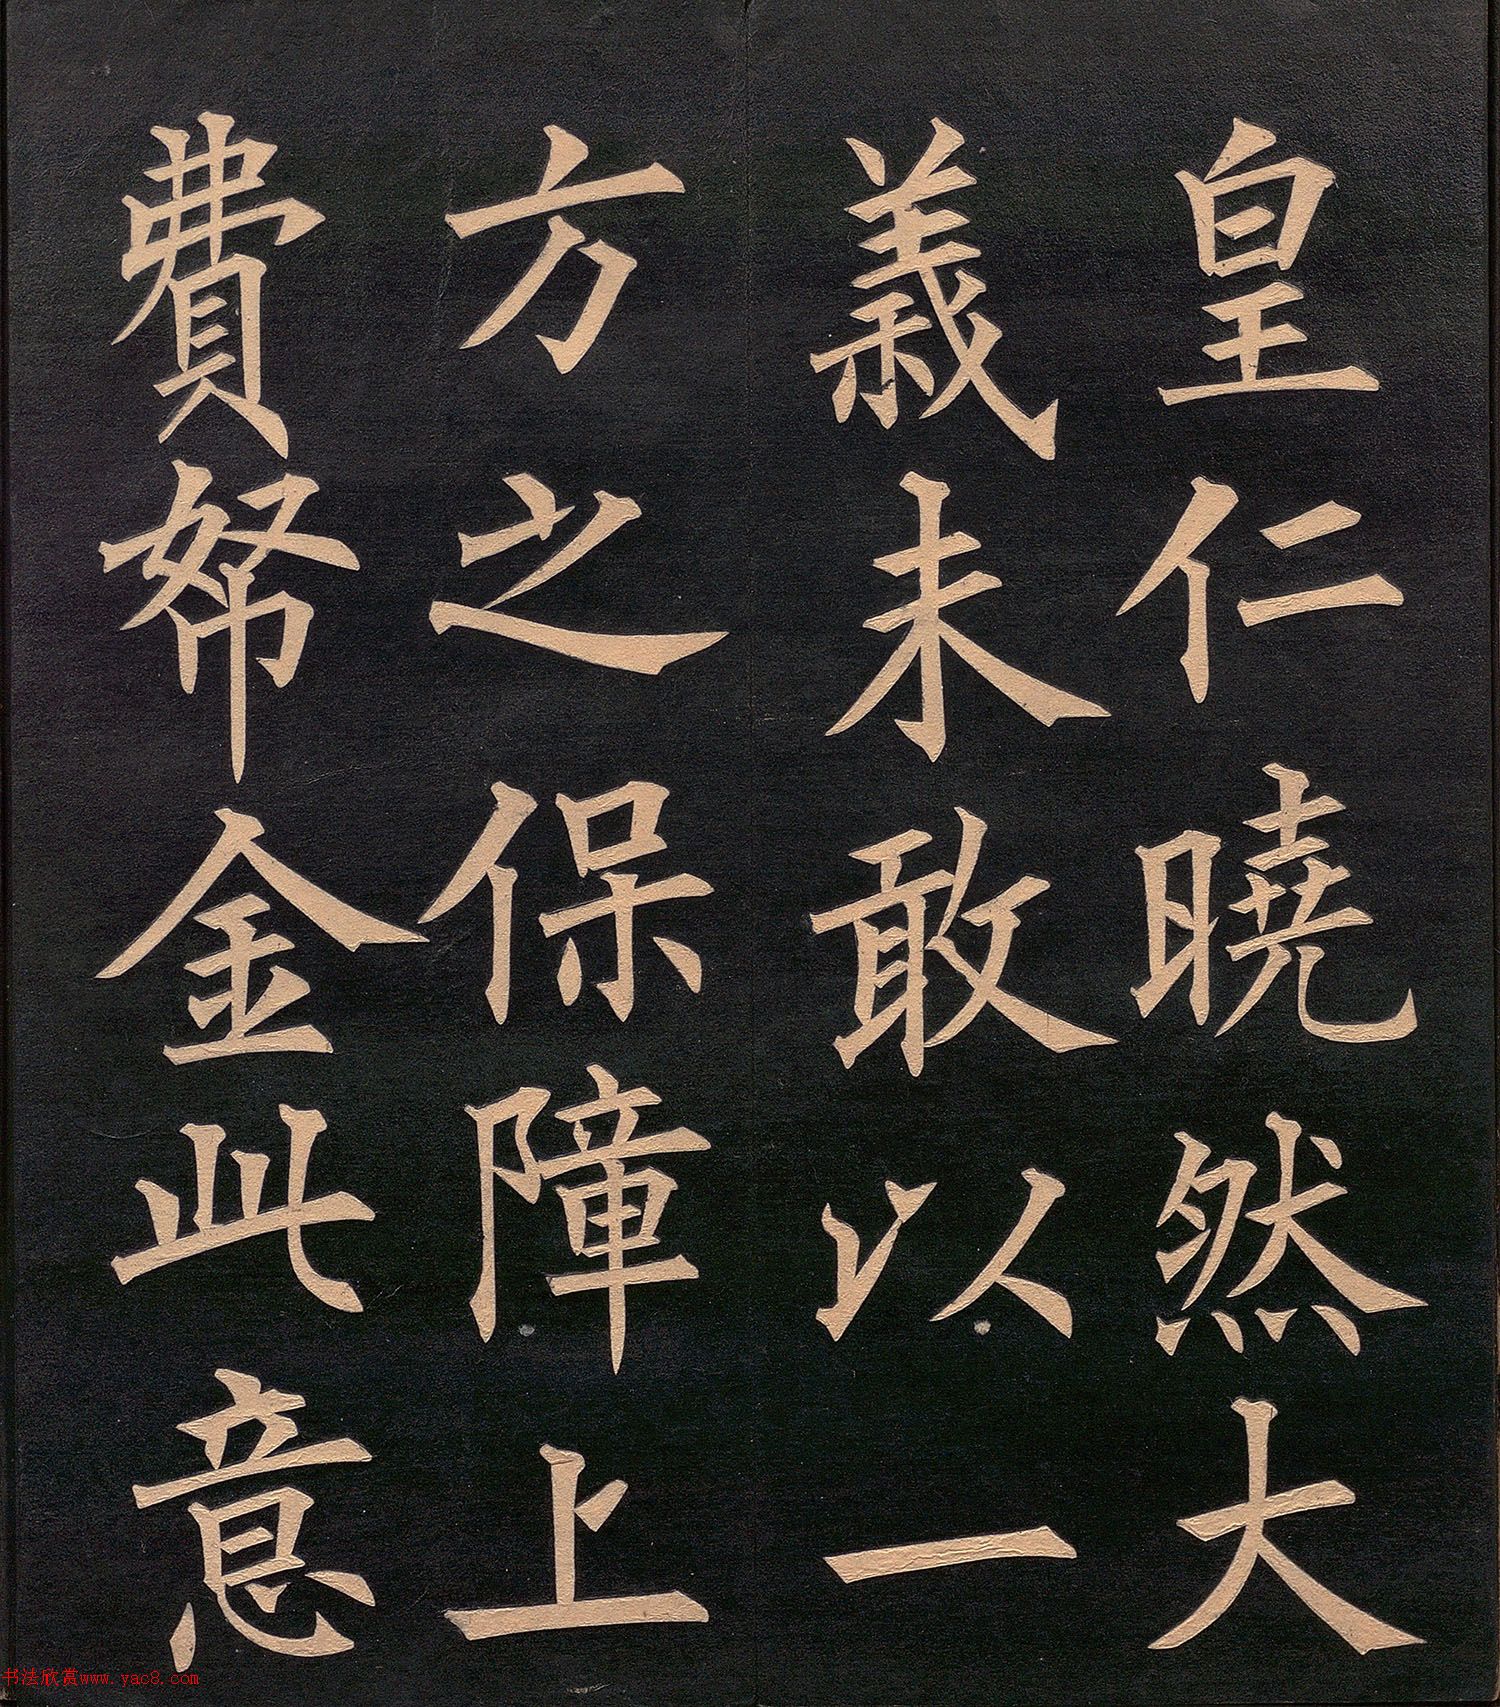 皇仁曉然大
義未敢以一
方之保障上
費帑金此意
书法欣赏www.yac8.com